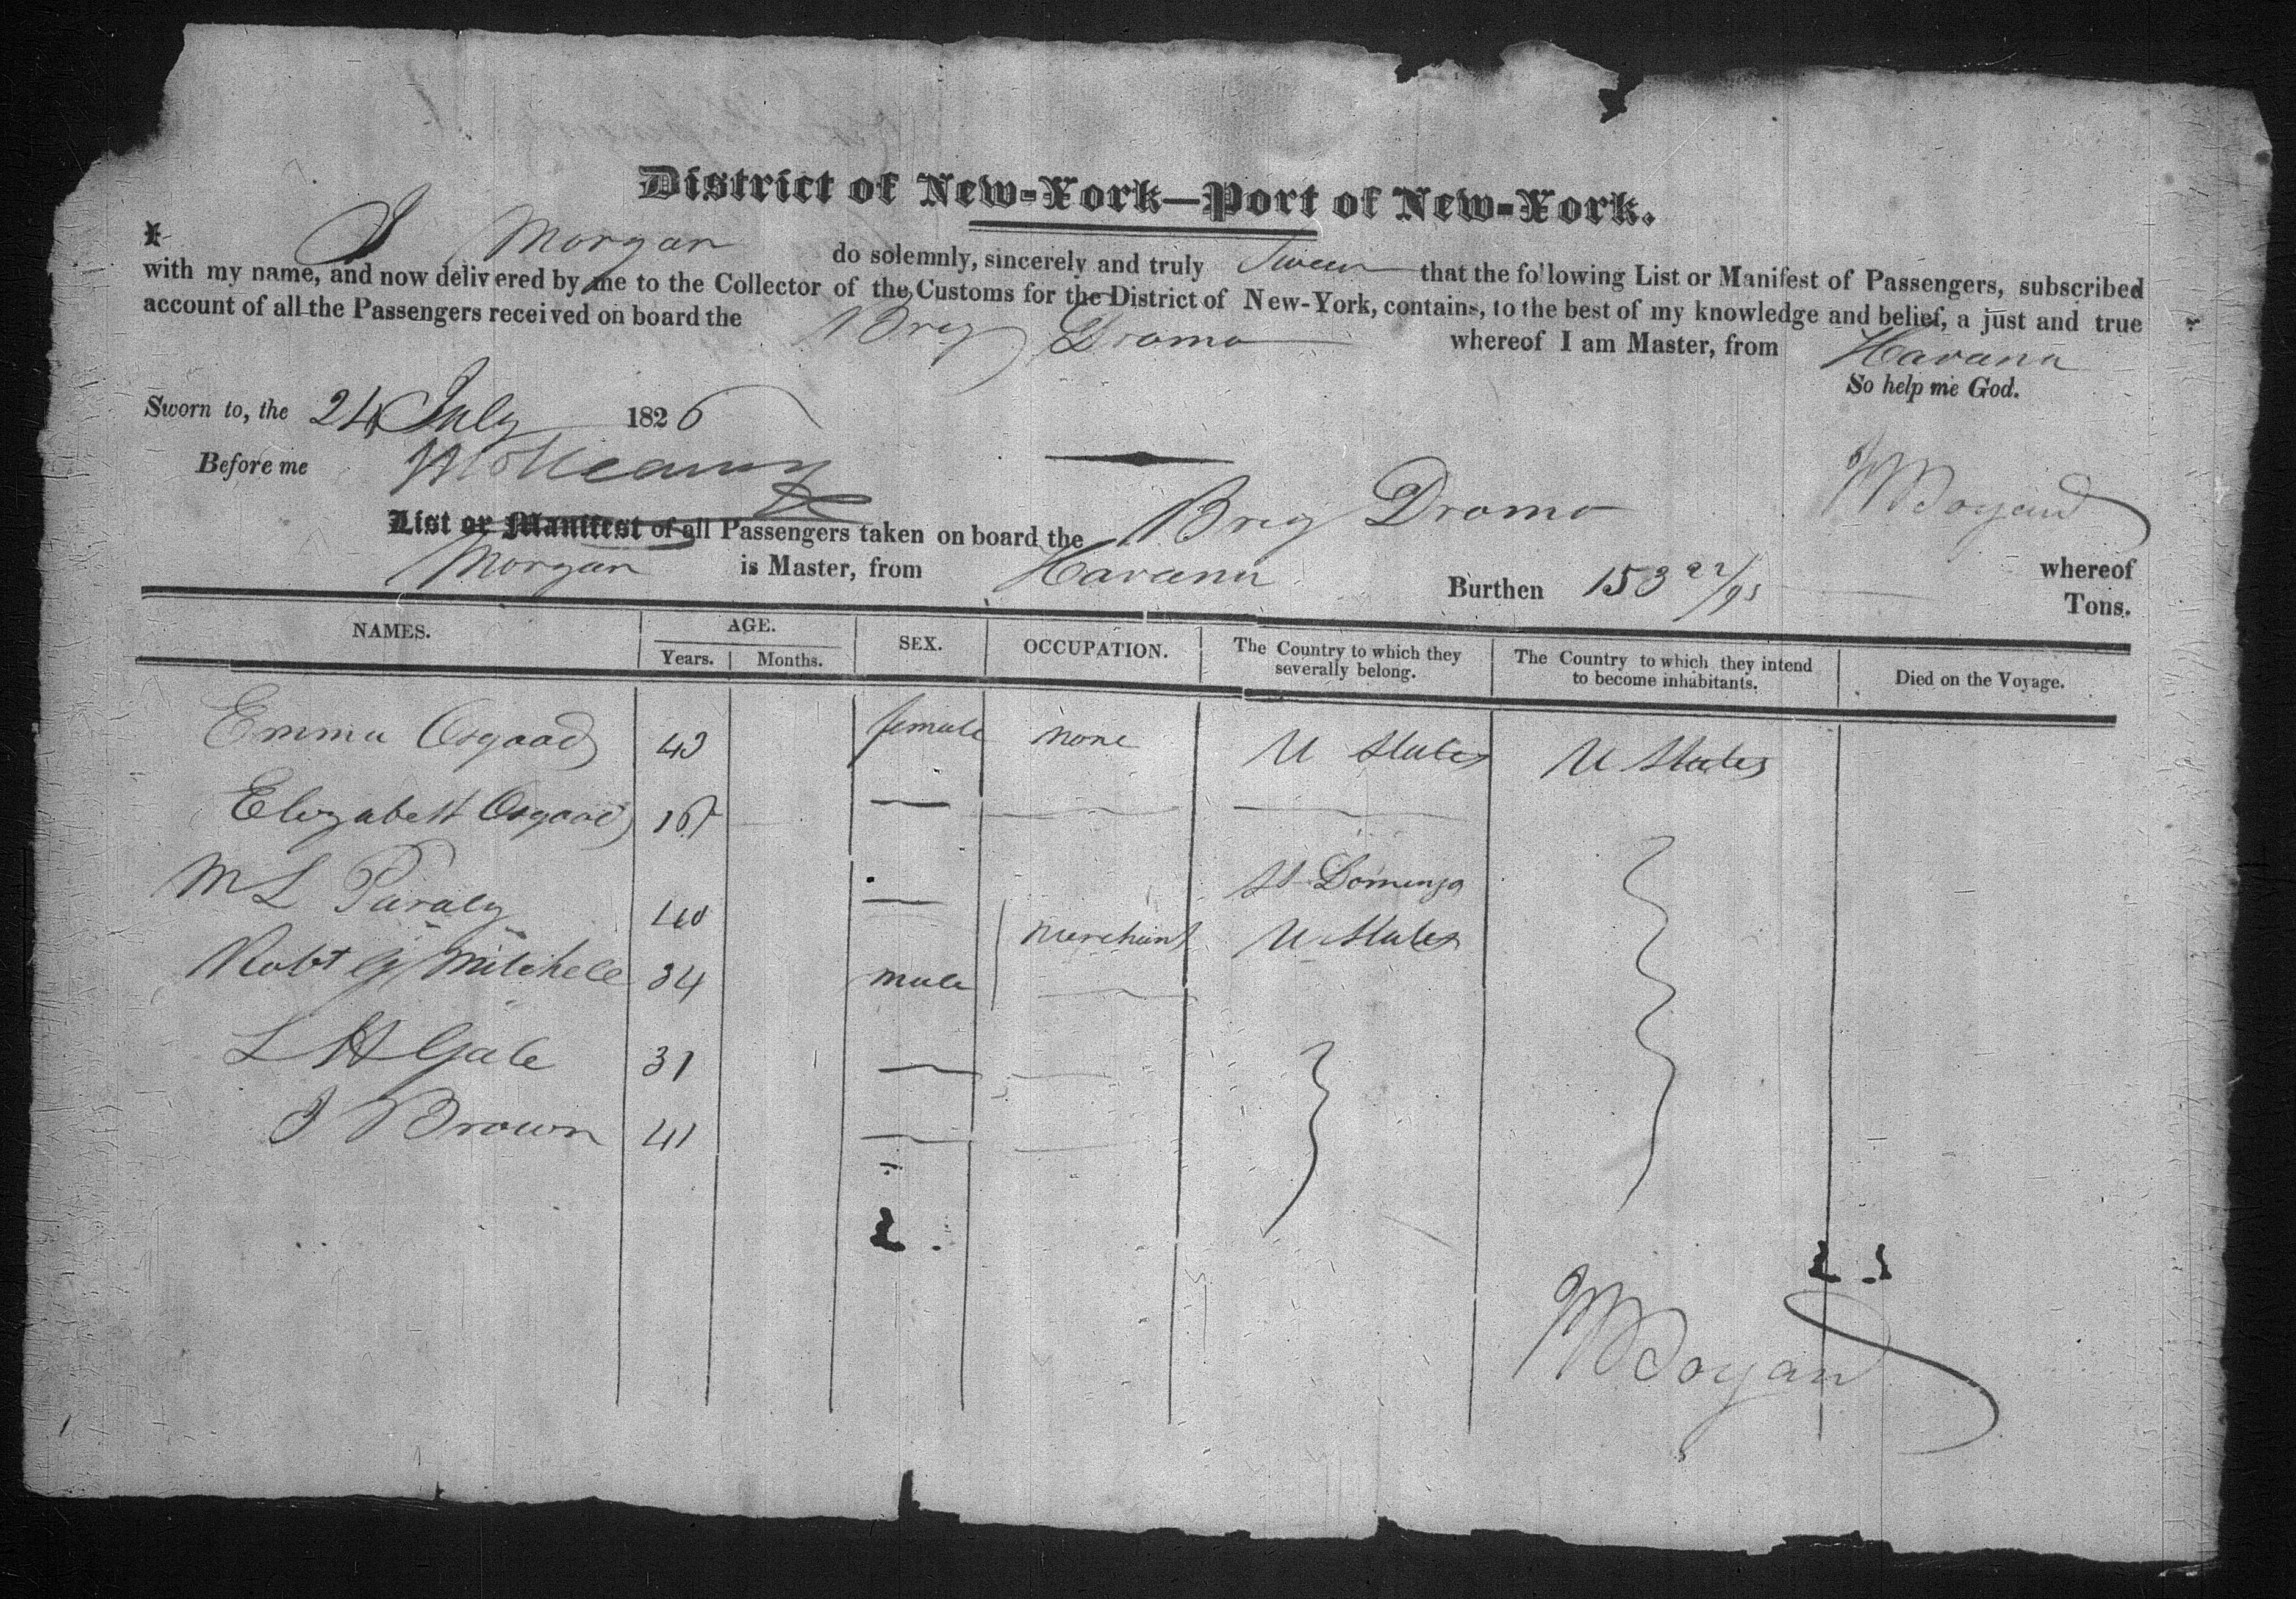 District of New-York—Port of New-York.
I J Morgan do solemnly, sincerely and truly Swear that the following List or Manifest of Passengers, subscribed
with my name, and now delivered by me to the Collector of the Customs for the District of New-York, contains, to the best of my knowledge and belief, a just and true
account of all the Passengers received on board the Brig Dromo whereof I am Master, from Havana
So help me God.
Sworn to, the 24 July 1826
Before me
List or Manifest of all Passengers taken on board the Brig Dromo whereof
Morgan is Master, from Havana Burthen 153 22/95 Tons.
NAMES. AGE. SEX. OCCUPATION. The Country to which they severally belong. The Country to which they intend to become inhabitants. Died on the Voyage.
Years. Months.
Emma Osgood 43 female none U States U States
Elizabeth Osgood 16
M L 40 St Domingo
Robt Mitchell 34 male merchant U States
L H Gale 31
J Brown 41